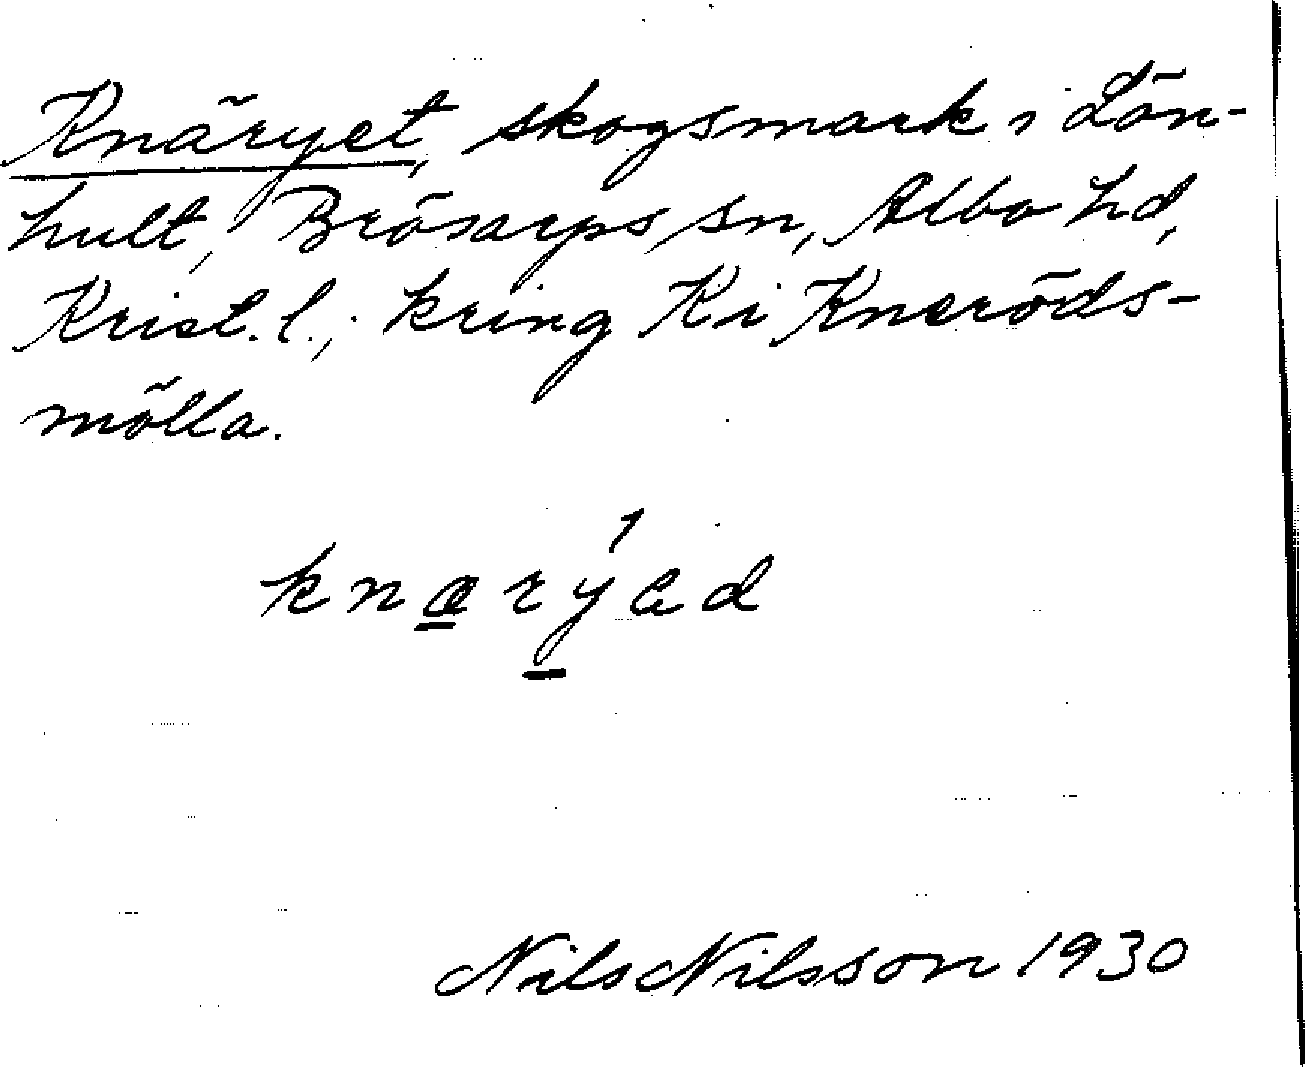 Knäryet, skogsmark i Lön-
hult, Brösarps sn, Albo hd,
Krist. l.; kring K i Kneröds-
mölla.
knærýəd
Nils Nilsson 1930